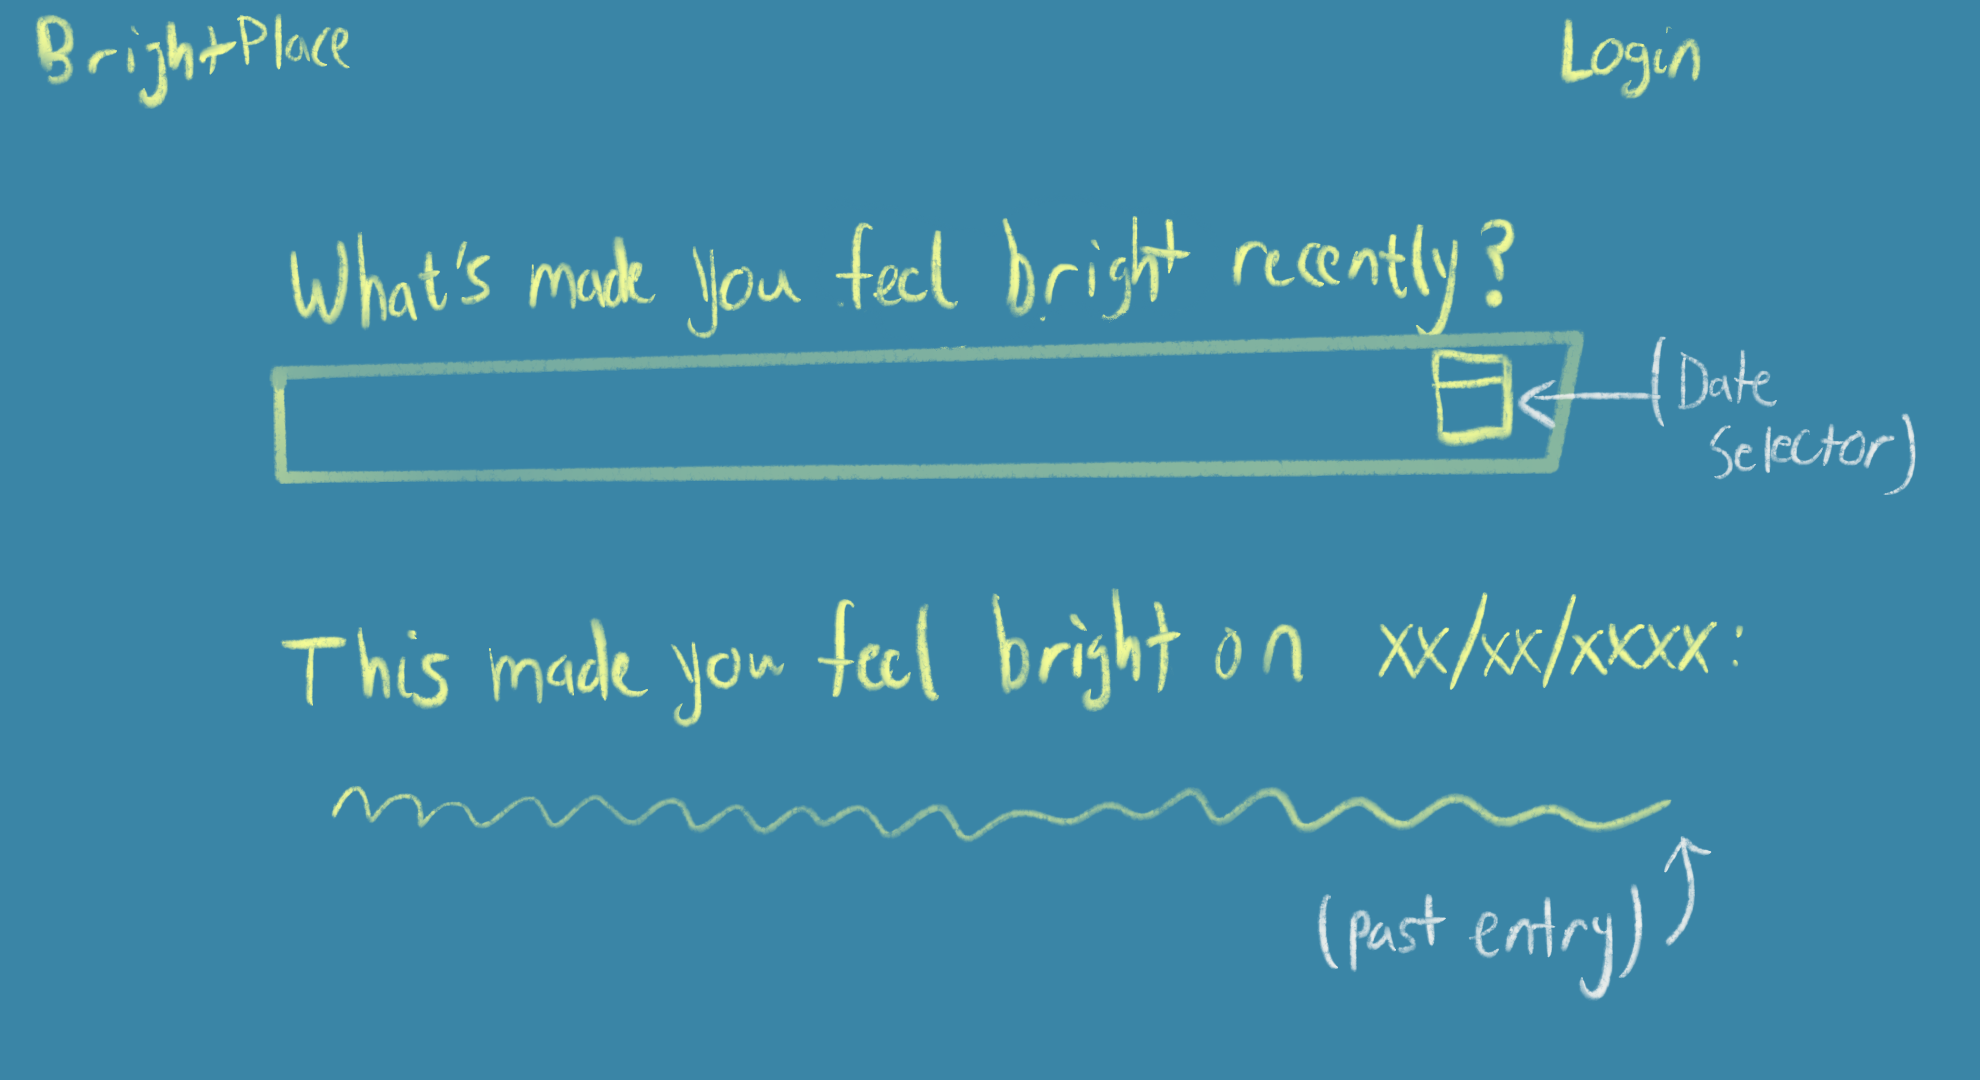 BrightPlace
Login
What's made you feel bright recently?
(Date
Selector)
This made you feel bright on xx/xx/xxxx:
(past entry)